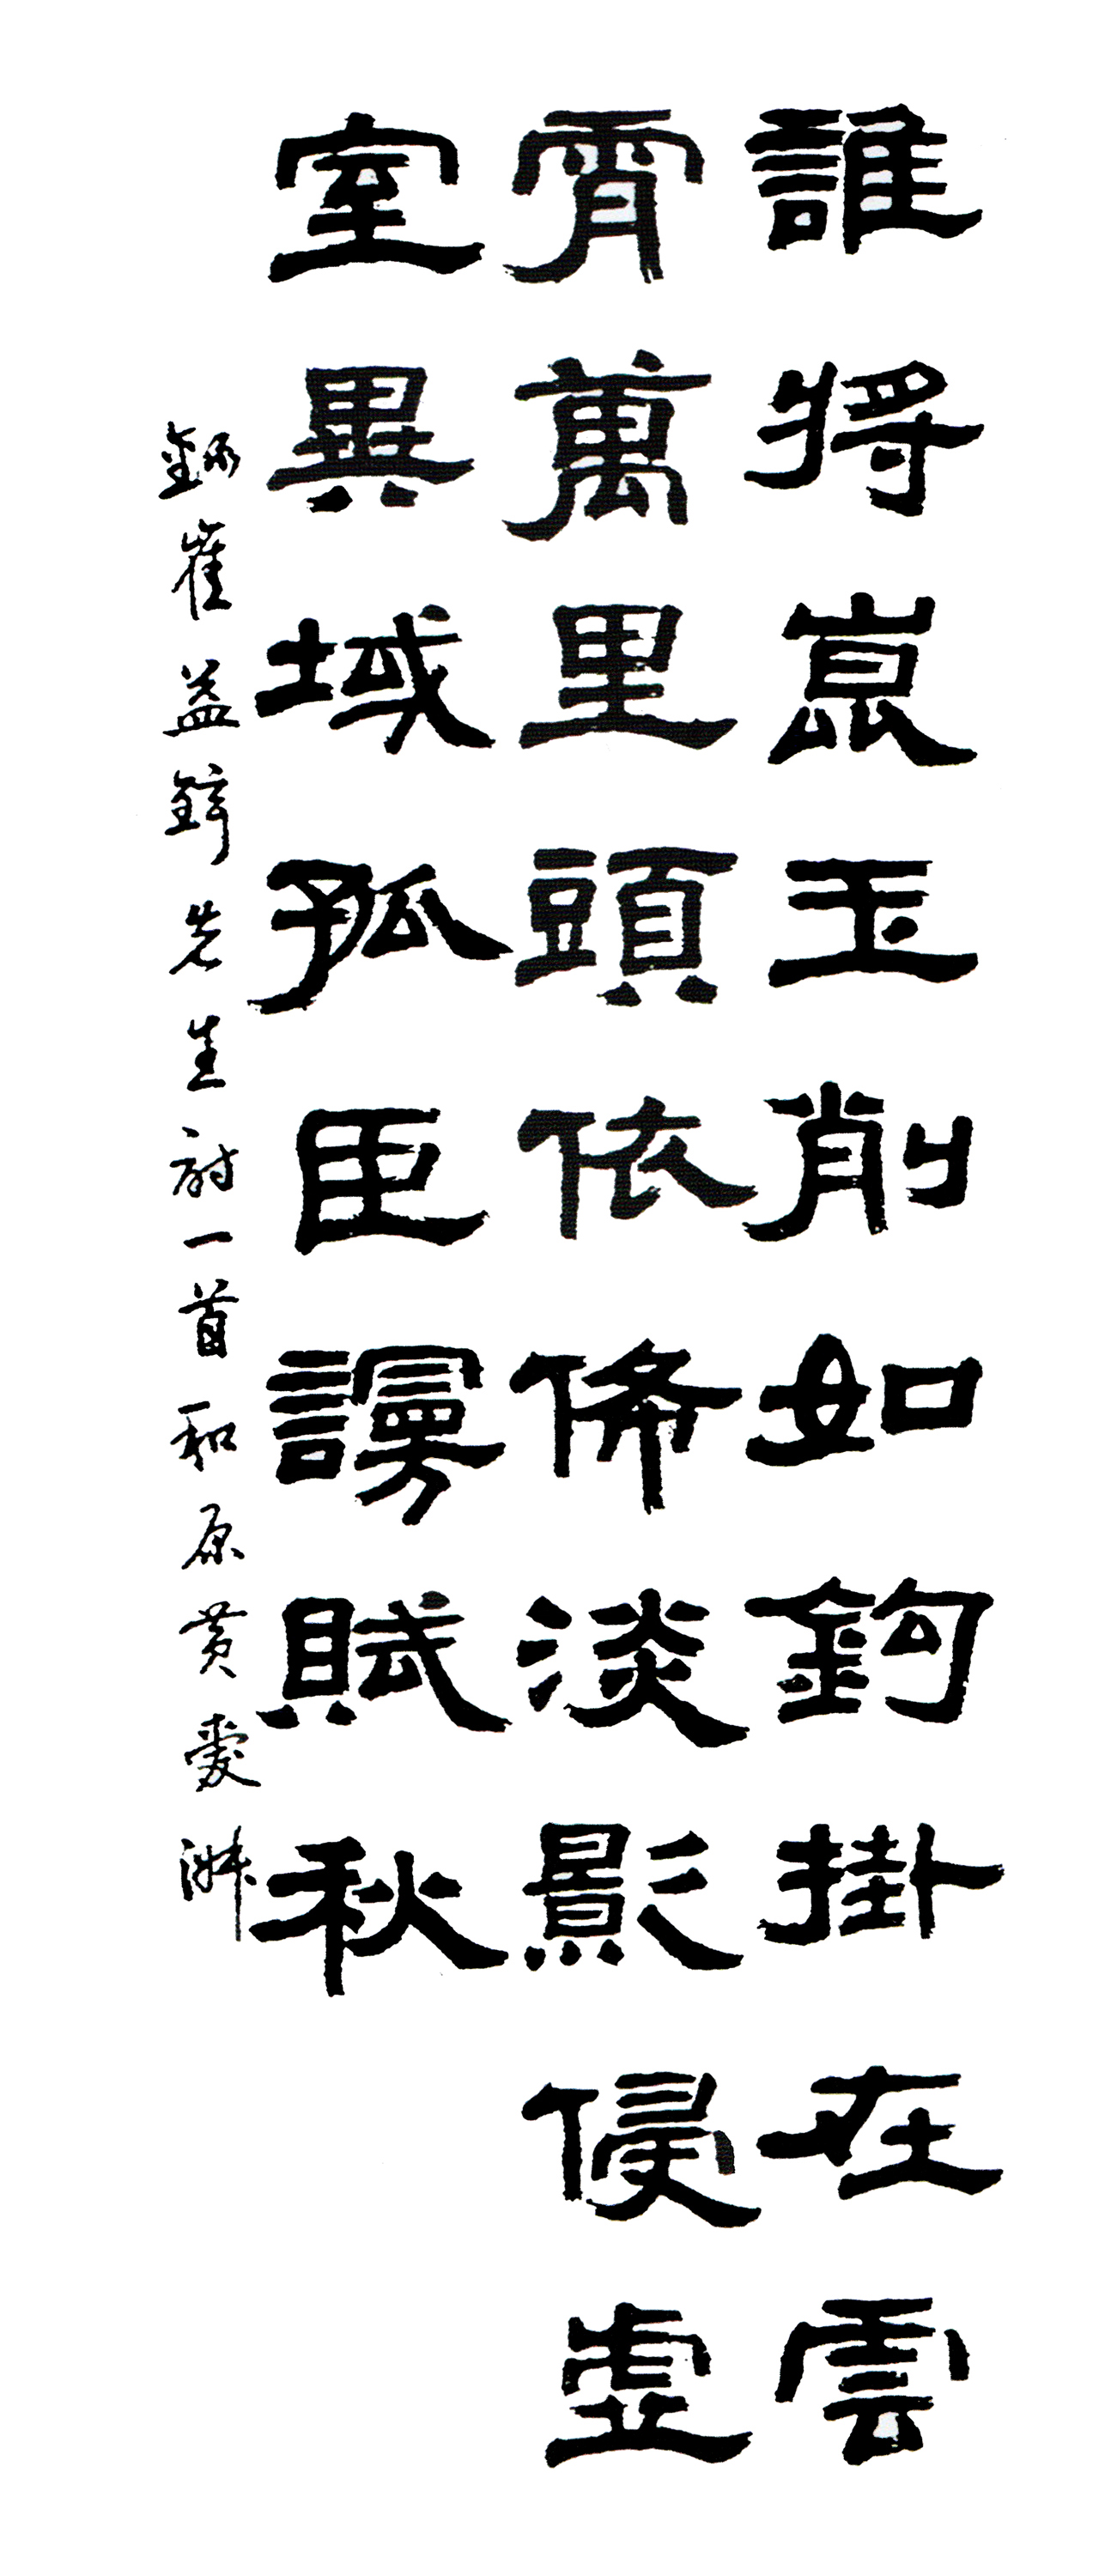 誰將崑玉削如鈎掛在雲
霄萬里頭依俙淡影侵虛
室異域孤臣謾賦秋
錄崔益先生詩一首和原黃